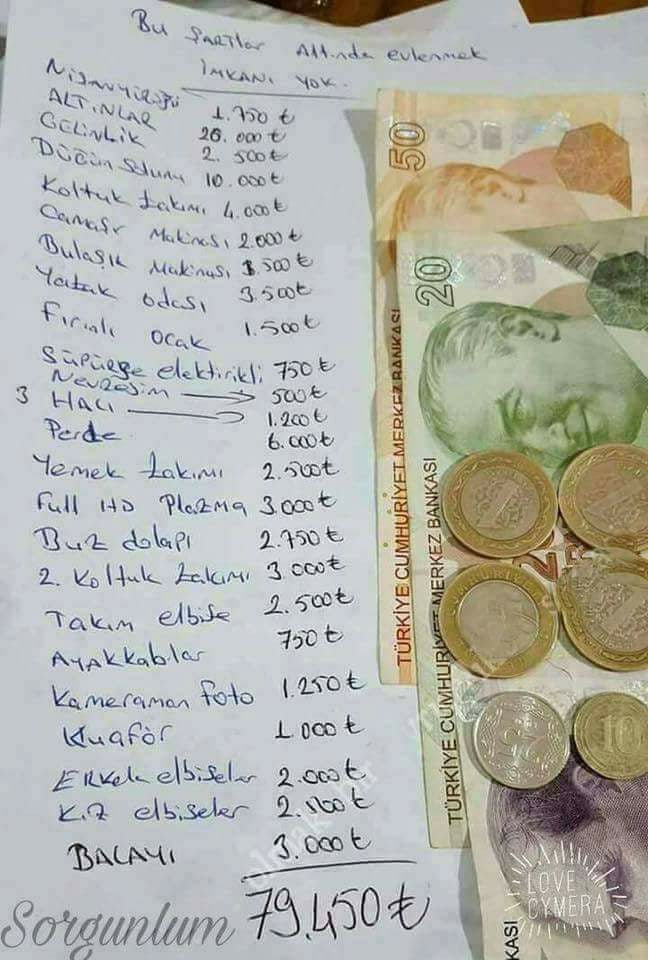 Bu ŞARTlar Altında evlenmek
İMKANI YOK.
NişanYüzüğü 1.750 ₺
ALTINLAR 26.000 ₺
GELİNLİK 2.500 ₺
Düğün Salonu 10.000 ₺
Koltuk takımı 4.000 ₺
Camaşır Makinası 2.000 ₺
Bulaşık Makinası 1.500 ₺
Yatak odası 3.500 ₺
Fırınlı ocak 1.500 ₺
Süpürge elektirikli 750 ₺
Nevresim 500 ₺
3 HALI 1.200 ₺
Perde 6.000 ₺
Yemek takımı 2.500 ₺
Full HD Plazma 3.000 ₺
Buz dolapı 2.750 ₺
2. Koltuk takımı 3.000 ₺
Takım elbise 2.500 ₺
Ayakkabılar 750 ₺
Kameraman foto 1.250 ₺
Kuaför 1.000 ₺
Erkek elbiseler 2.000 ₺
Kız elbiseler
BALAYI 3.000 ₺
79.450 ₺
Sorgunlum
50
TÜRKİYE CUMHURİYET MERKEZ BANKASI
20
TÜRKİYE CUMHURİYET MERKEZ BANKASI
10
KASI
LOVE
CYMERA